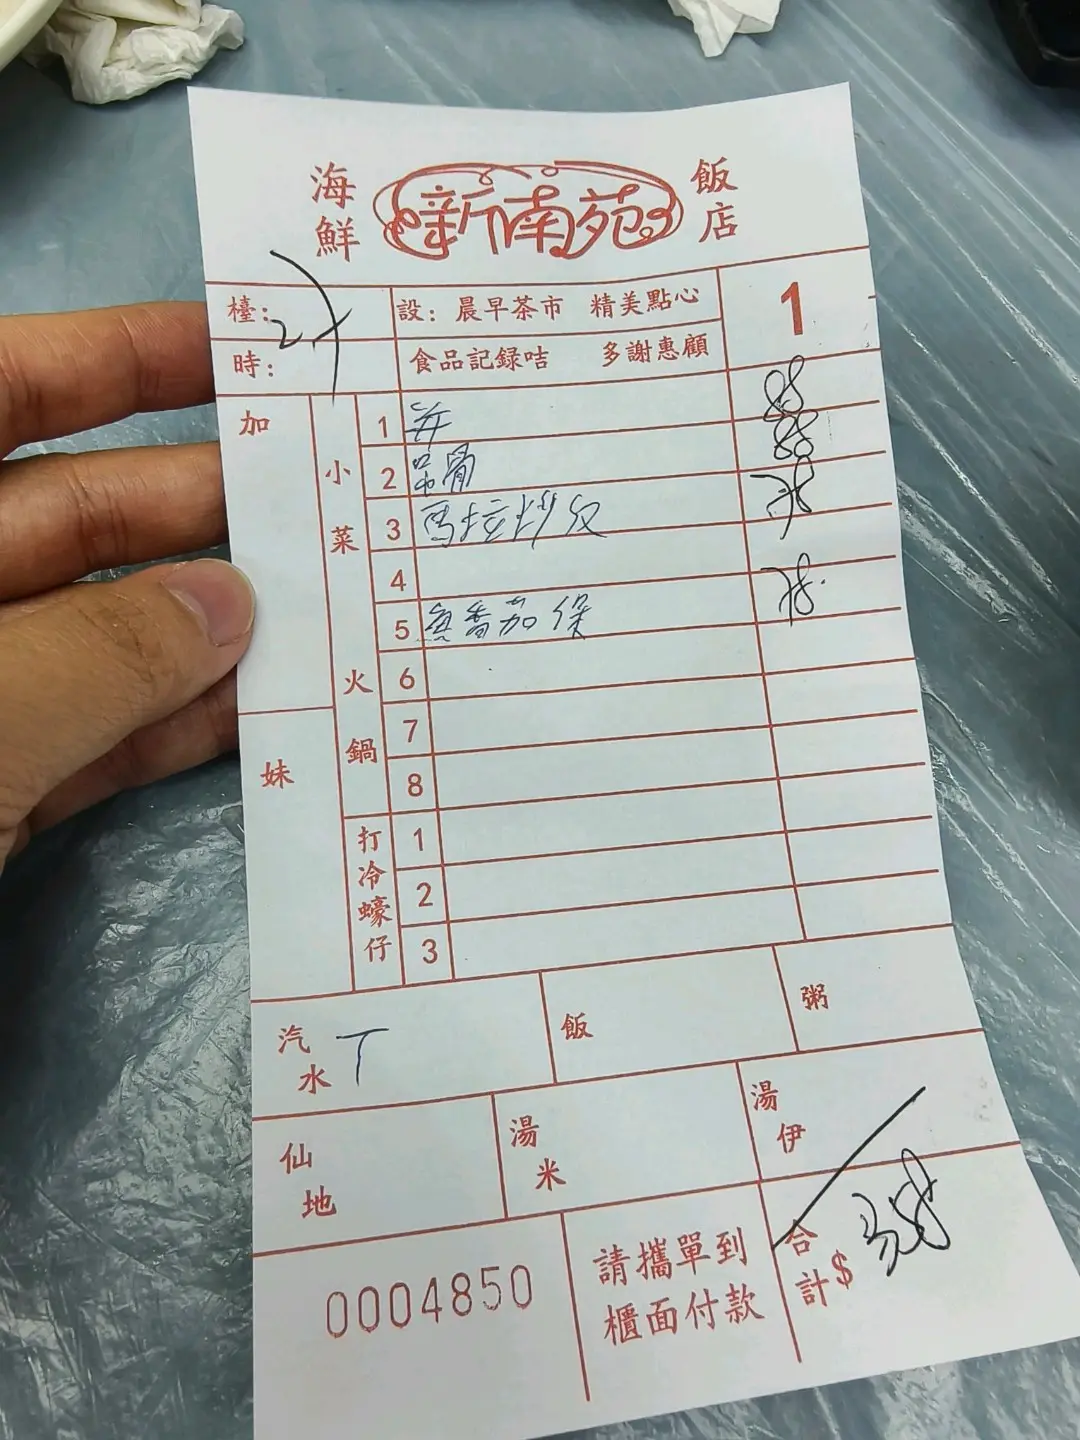 海鮮 新南苑 飯店
檯:
設: 晨早茶市 精美點心
1
時:
食品記録咭 多謝惠顧
加
小菜
1
2 骨
3 馬拉炒
4
5 魚香茄保
火鍋
6
7
8
妹
打冷蠔仔
1
2
3
汽水 T
飯
粥
仙地
湯米
湯伊
0004850
請攜單到
櫃面付款
合計$